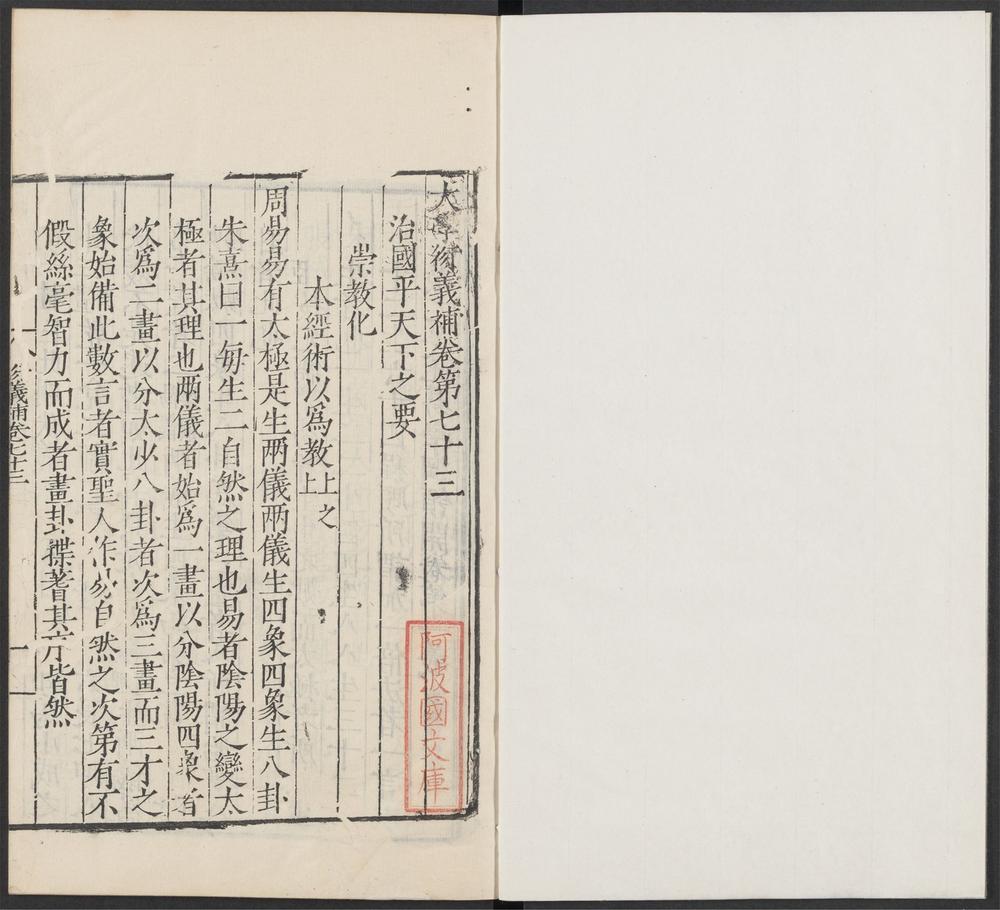 大學衍義補卷第七十三
治國平天下之要
崇教化
本經術以爲教上之上
周易易有太極是生兩儀兩儀生四象四象生八卦
朱熹曰一每生二自然之理也易者陰陽之變太
極者其理也兩儀者始爲一畫以分陰陽四象者
次爲二畫以分太少八卦者次爲三畫而三才之
象始備此數言者實聖人作易自然之次第有不
假絲毫智力而成者畫卦揲蓍其序皆然
義補卷七十三
阿波國文庫